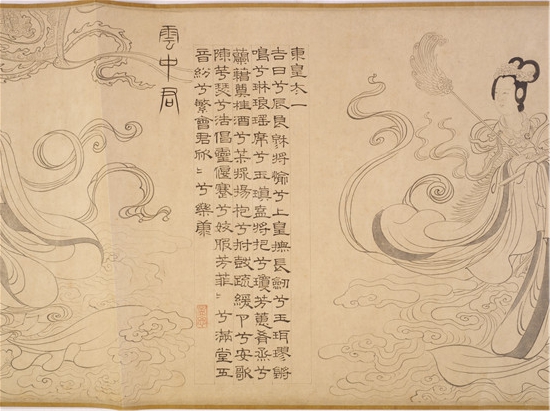 東皇太一
吉日兮辰良穆將愉兮上皇撫長劍兮玉珥璆鏘
鳴兮琳琅瑤席兮玉瑱盍將把兮瓊芳蕙肴烝兮
蘭藉奠桂酒兮椒漿揚枹兮拊鼓疏緩卪兮安歌
陳竽瑟兮浩倡靈偃蹇兮姣服芳菲〻兮滿堂五
音紛兮繁會君欣〻兮樂康
雲中君